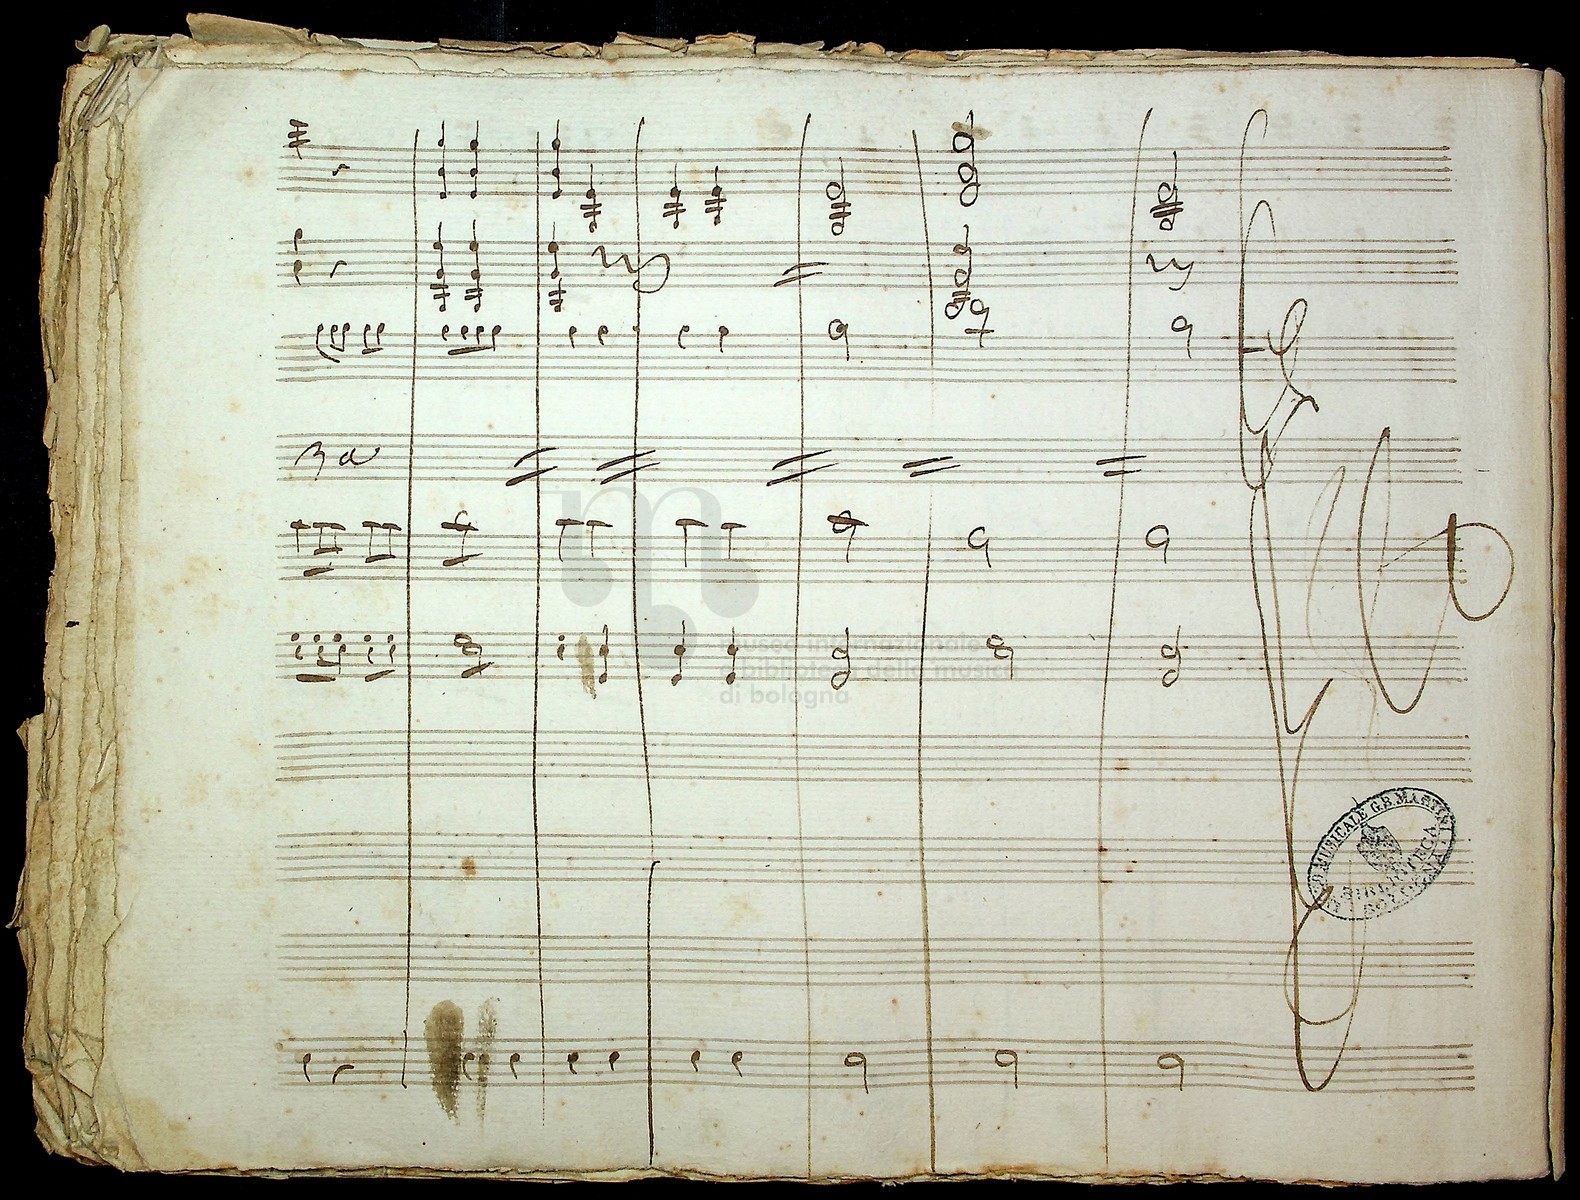 museo internazionale
e biblioteca della musica
di bologna
MUSICALE G.B. MARTINI
BIBLIOTECA
BOLOGNA